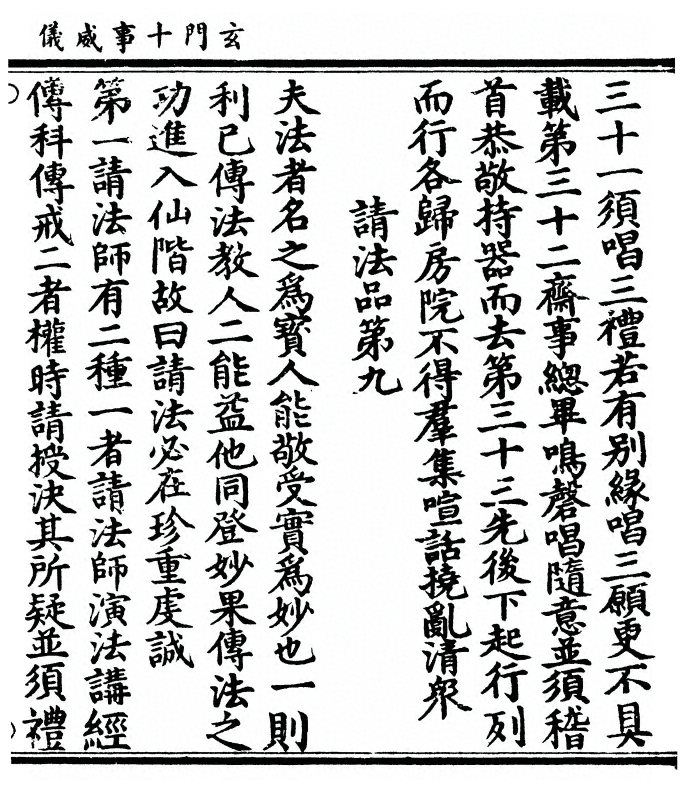 玄門十事威儀
三十一須唱三禮若有别緣唱三願更不具
載第三十二齋事總畢鳴磬唱隨意並須稽
首恭敬持器而去第三十三先後下起行列
而行各歸房院不得羣集喧話撓亂清衆
請法品第九
夫法者名之爲寳人能敬受實爲妙也一則
利已傳法教人二能益他同登妙果傳法之
功進入仙階故曰請法必在珍重虔誠
第一請法師有二種一者請法師演法講經
傳科傳戒二者權時請授決其所疑並須禮